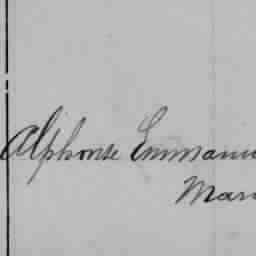 Alphonse Emmanu
Mar